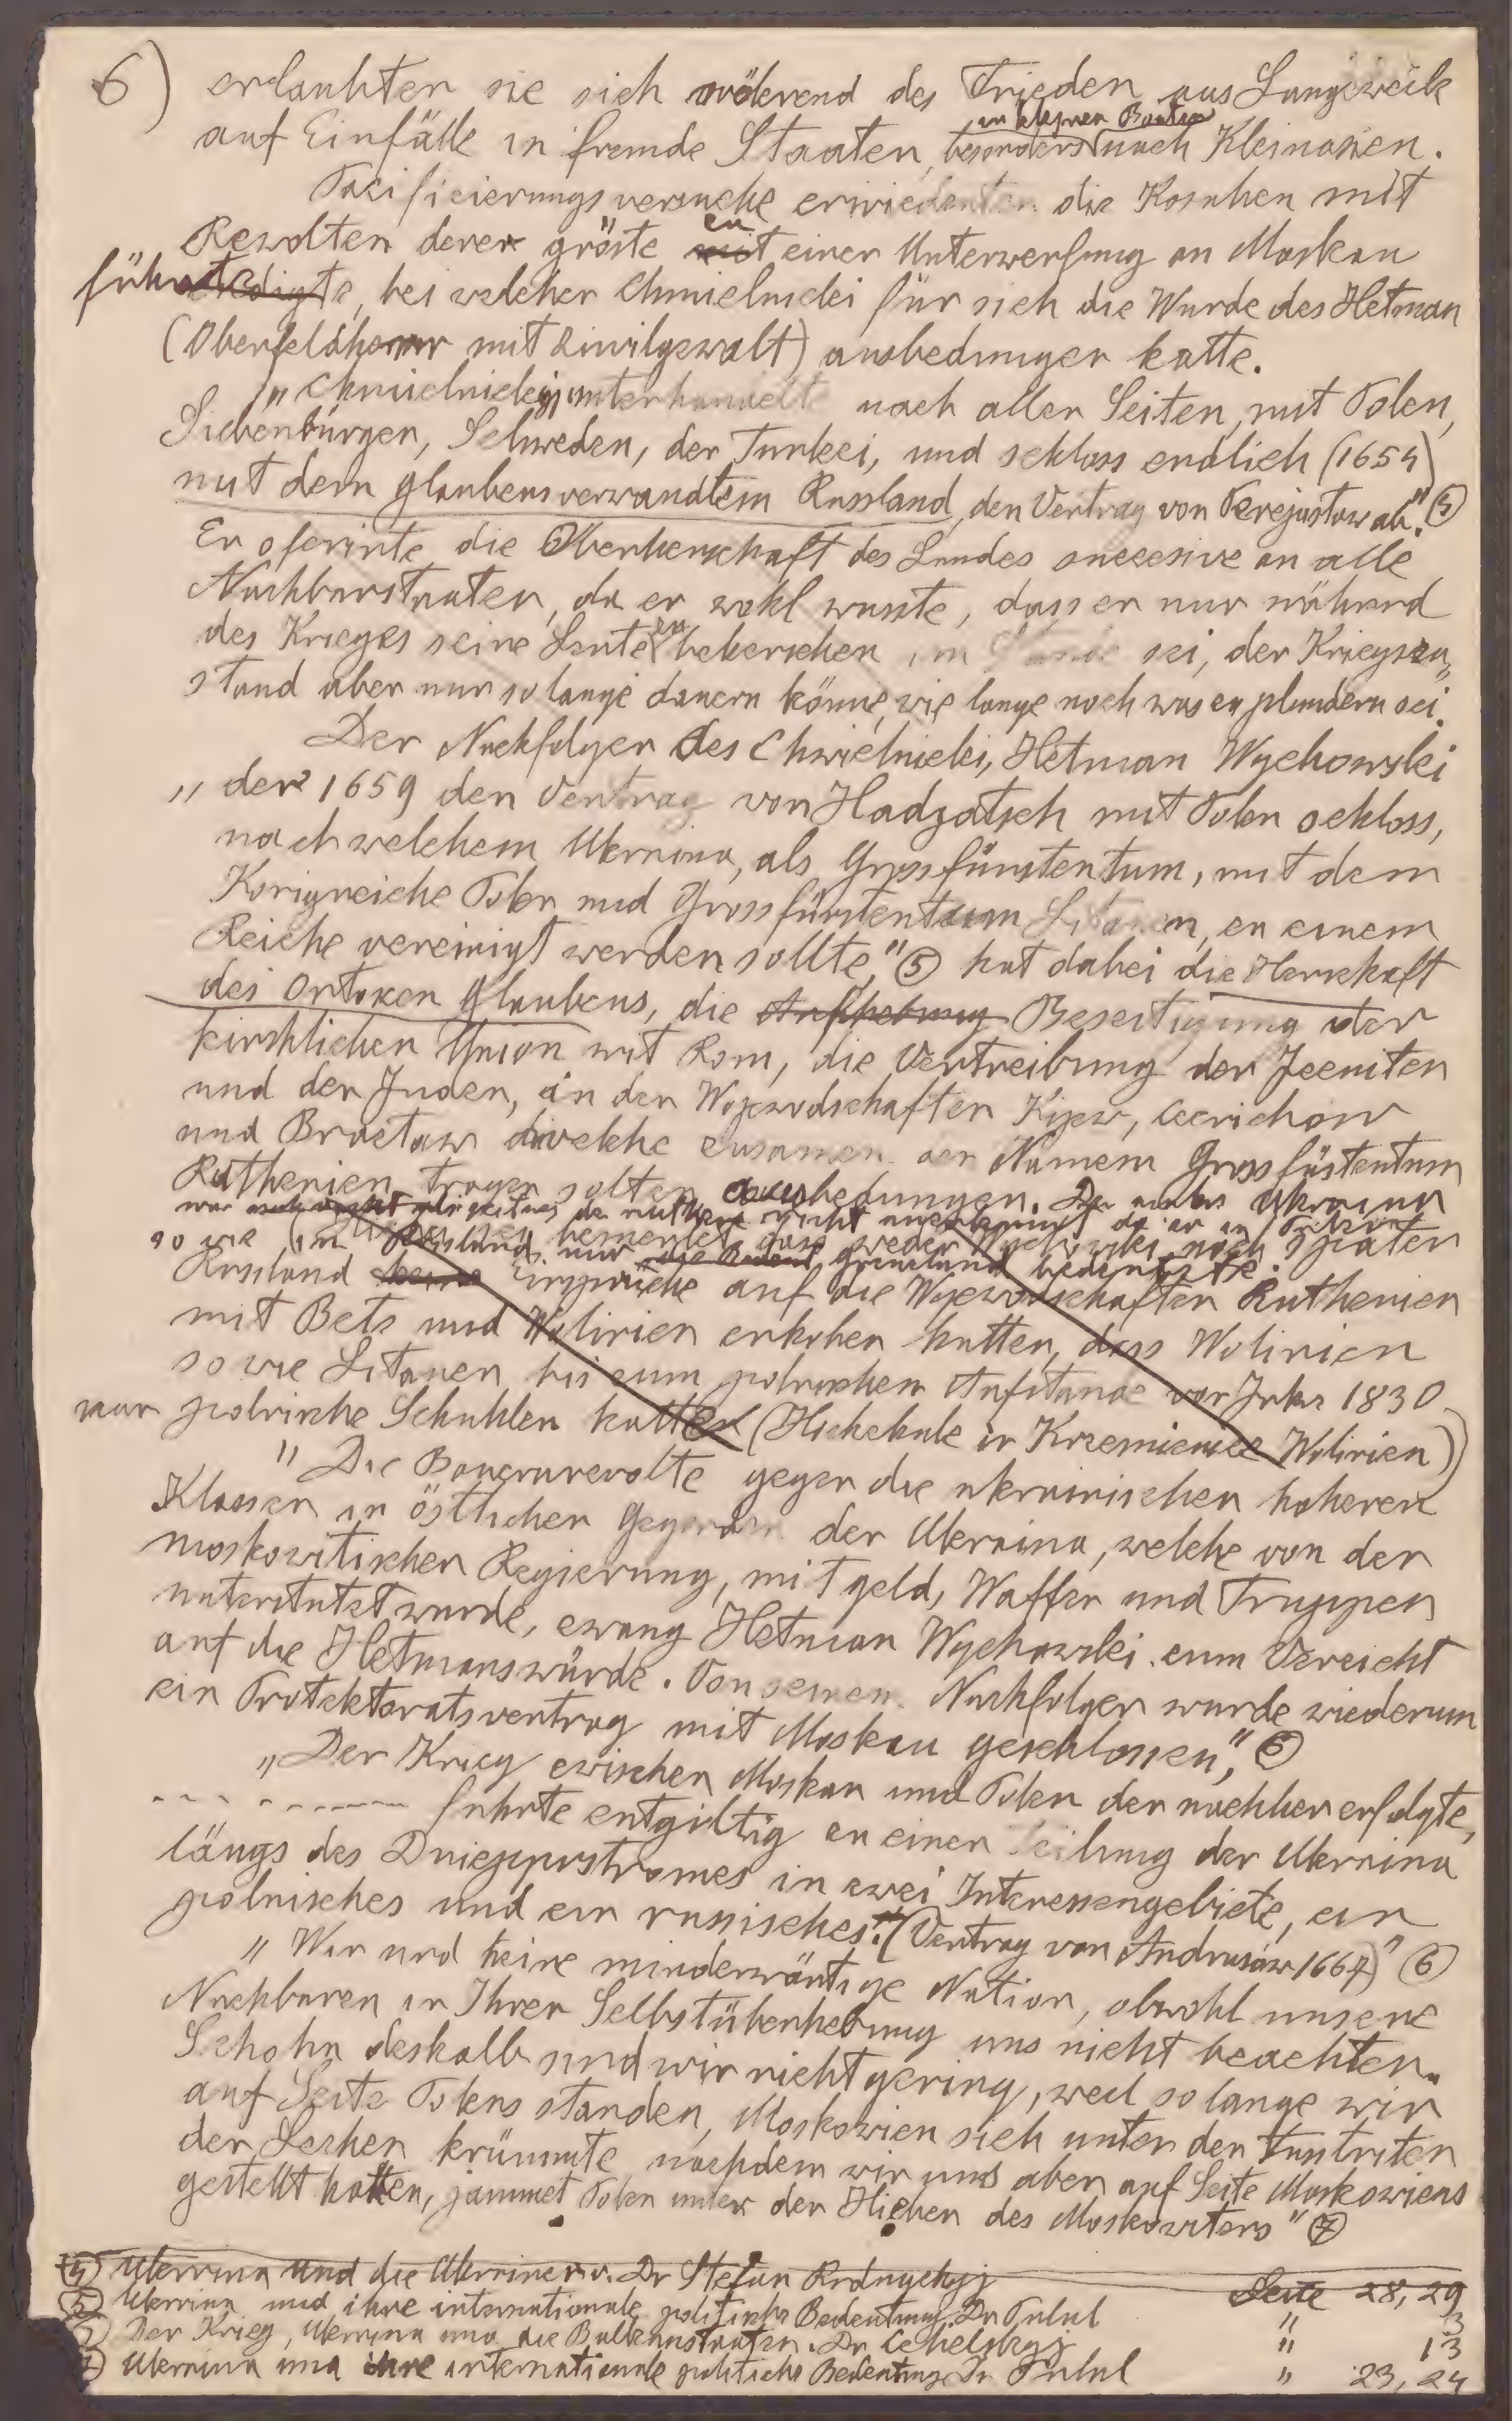 6) erlaubten sie sich wöderend des Frieden aus Langeweile
auf Einfälle in fremde Staaten, besonders in kleinen Booten nach Kleinasien.
Pacificierungsversuche erwiederten die Kosaken mit
Revolten derer gröste zu einer Unterwerfung an Moskau
führte, bei welcher Chmielnicki für sich die Wurde des Hetman
(Oberfeldherr mit Ziwilgewalt) ausbedungen hatte.
"Chmielnickij unterhandelte nach allen Seiten, mit Polen,
Siebenbürgen, Schweden, der Turkei, und schloss endlich (1654)
mit dem glaubensverwandtem Russland, den Vertrag von Perejastaw ab." (4)
Er oferirte die Oberherschaft des Landes sucesive an alle
Nachbarstaaten, da er wohl wusste, dass er nur während
des Krieges seine Leute zu beherschen im Stande sei, der Kriegszu„
stand aber nur so lange dauern könne, wie lange noch was zu plundern sei.
Der Nachfolger des Chmielnicki, Hetman Wychowski
" der 1659 den Vertrag von Hadzatsch mit Polen schloss,
nach welchem Ukraina, als Grossfürstentum, mit dem
Konigreiche Polen und Grossfürstentum Litauen, zu einem
Reiche vereinigt werden sollte," (5) hat dabei die Herrschaft
des Ortoxen Glaubens, die Aufhebung Beseitigung der
kirchlichen Union mit Rom, die Vertreibung der Jezuiten
und der Juden, in den Wojewodschaften Kijew, Czerichow
und Bractaw welche zusamen den Namem Grossfüstentum
Ruthenien tragen solten, ausbedungen. Ukraina
war nicht anerkannt
so wie im Russland nur weder Wychowski noch Später
Russland keine Ansprüche auf die Wojewodschaften Ruthenien
mit Betz und Wolinien erhoben hatten, dass Wolinien
sowie Litauen bis zum polnischen Aufstande vor Jahr 1830
nur polnische Schuhlen hatten (Hochschule in Krzemieniec Wolinien)
" Die Bauernrevolte gegen die ukrainischen höheren
Klassen in östlichen Gegenden der Ukraina, welche von der
moskowitischen Regierung, mit geld, Waffen und Truppen
unterstutzt wurde, zwang Hetman Wychowski zum Verzicht
auf die Hetmanswürde. Von seinem Nachfolger wurde wiederum
ein Protektoratsvertrag mit Moskau geschlossen," (5)
"Der Krieg zwischen Moskau und Polen der nachher erfolgte,
- - - - - - - - - - führte entgiltig zu einer Teilung der Ukraina
längs des Dnieperstromes in zwei Interessengebiete, ein
polnisches und ein russisches. (Vertrag von Andrusow 1667)" (6)
" Wir sind keine minderwärtige Nation, obwohl unsere
Nachbaren in Ihrer Selbstüberhebung uns nicht beachten.
Schohn deshalb sind wir nicht gering, weil so lange wir
auf Seite Polens standen, Moskowien sich unter den Fustriten
der Lechen krümmte, nachdem wir uns aber auf Seite Moskowiens
gestellt hatten, jammet Polen unter den Hieben des Moskowiters" (7)
(4) Ukraina und die Ukrainer v. Dr Stefan Rudnyckyj Seite 28, 29
(5) Ukraina und ihre internationale politische Bedeutung, Dr Puluj " 3
Der Krieg, Ukraina und die Balkanstaaten. Dr Cehelskyj " 13
(7) Ukraina und ihre internationale politische Bedeutung Dr Puluj " 23, 24